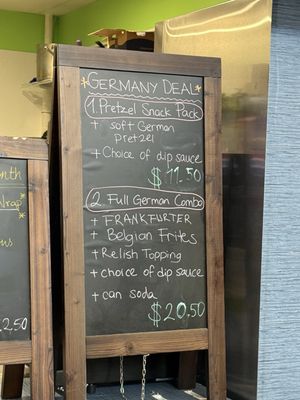 GERMANY DEAL
1 Pretzel Snack Pack
+ soft German
pretzel
+ Choice of dip sauce
$11.50
2 Full German Combo
+ FRANKFURTER
+ Belgian Frites
+ Relish Topping
+ choice of dip sauce
+ can soda
$20.50